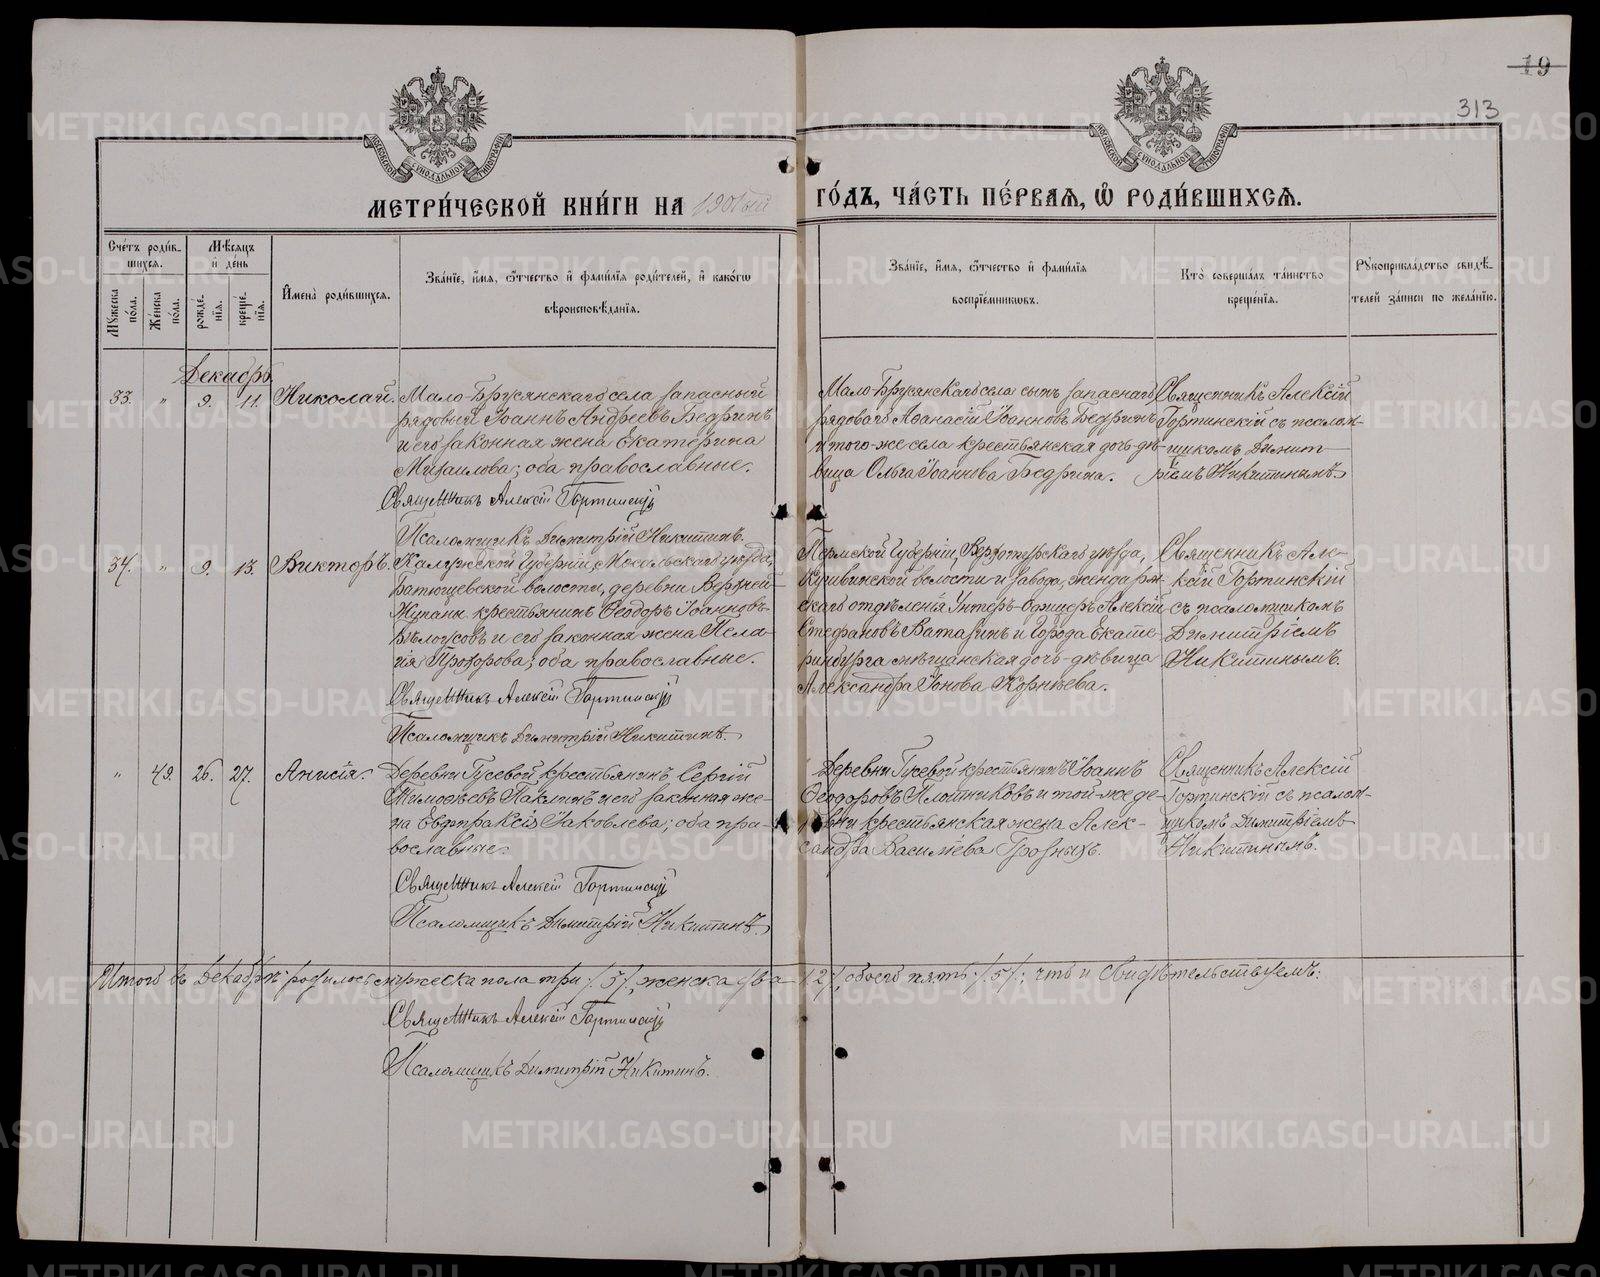 19
313
МОСКОВСКОЙ СѴНОДАЛЬНОЙ ТИПОГРАФІИ
МОСКОВСКОЙ СѴНОДАЛЬНОЙ ТИПОГРАФІИ
МЕТРИ́ЧЕСКОЙ КНИ́ГИ НА 1901ый ГО́ДЪ, ЧА́СТЬ ПЕ́РВАѦ, Ѡ РОДИ́ВШИХСѦ.
Сче́тъ роди́вшихся.
Мꙋ́жеска по́ла.
Же́нска по́ла.
Мѣ́сяцъ и де́нь
рожде́нїя.
креще́нїя.
И҆мена̀ роди́вшихся.
Зва́нїе, и҆́мя, ѻ҆́тчество и҆ фами́лїя роди́телей, и҆ како́гѡ
вѣроисповѣ́данїя.
Зва́нїе, и҆́мя, ѻ҆́тчество и҆ фами́лїя
воспрїе́мникѡвъ.
Кто̀ соверша́лъ та́инство
креще́нїя.
Рꙋкоприкла́дство свидѣ́-
телей за́писи по жела́нїю.
Декабрь
33. " 9. 11. Николай.
Мало-Брусянскаго села запасный
рядовый Іоаннъ Андреевъ Бедринъ
и его законная жена Екатерина
Михаилова; оба православные.
Священникъ Алексій Гортинскій
Псаломщикъ Димитрій Никитинъ.
Мало-Брусянскаго села сынъ запаснаго
рядоваго Аѳанасій Іоанновъ Бедринъ
и того-же села крестьянская дочь дѣ-
вица Ольга Іоаннова Бедрина.
Священникъ Алексій
Гортинскій съ псалом-
щикомъ Димит-
ріемъ Никитинымъ.
34. " 9. 13. Викторъ.
Калужской Губерніи, Мосальскаго уѣзда,
деревни Верхней-
крестьянинъ Ѳеодоръ Іоанновъ
Бѣлоусовъ и его законная жена Пела-
гія Прохорова; оба православные.
Священникъ Алексій Гортинскій
Псаломщикъ Димитрій Никитинъ.
Пермской Губерніи, Верхотурскаго уѣзда,
Кушвинской волости и завода, жандарм-
скаго отдѣленія Унтеръ-Офицеръ Алексій
Стефановъ Ватагинъ и Города Екате-
ринбурга мѣщанская дочь-дѣвица
Александра Іонова Корнѣева.
Священникъ Але-
ксій Гортинскій
съ псаломщикомъ
Димитріемъ
Никитинымъ.
" 49. 26. 27. Анисія.
Деревни Гусевой, крестьянинъ Сергій
Тимоѳеевъ Паклинъ и его законная же-
на Евдпраксія Іаковлева; оба пра-
вославные.
Священникъ Алексій Гортинскій
Псаломщикъ Димитрій Никитинъ.
Деревни Гусевой крестьянинъ Іоаннъ
Ѳеодоровъ Плотниковъ и той-же де-
ревни крестьянская жена Алек-
сандра Васильева Грозныхъ.
Священникъ Алексій
Гортинскій съ псалом-
щикомъ Димитріемъ
Никитинымъ.
Итого въ Декабрѣ родилось мужеска пола три /.3/, женска два /.2/, обоего пять /.5/.; что и свидѣтельствуемъ:
Священникъ Алексій Гортинскій
Псаломщикъ Димитрій Никитинъ.
METRIKI.GASO-URAL.RU